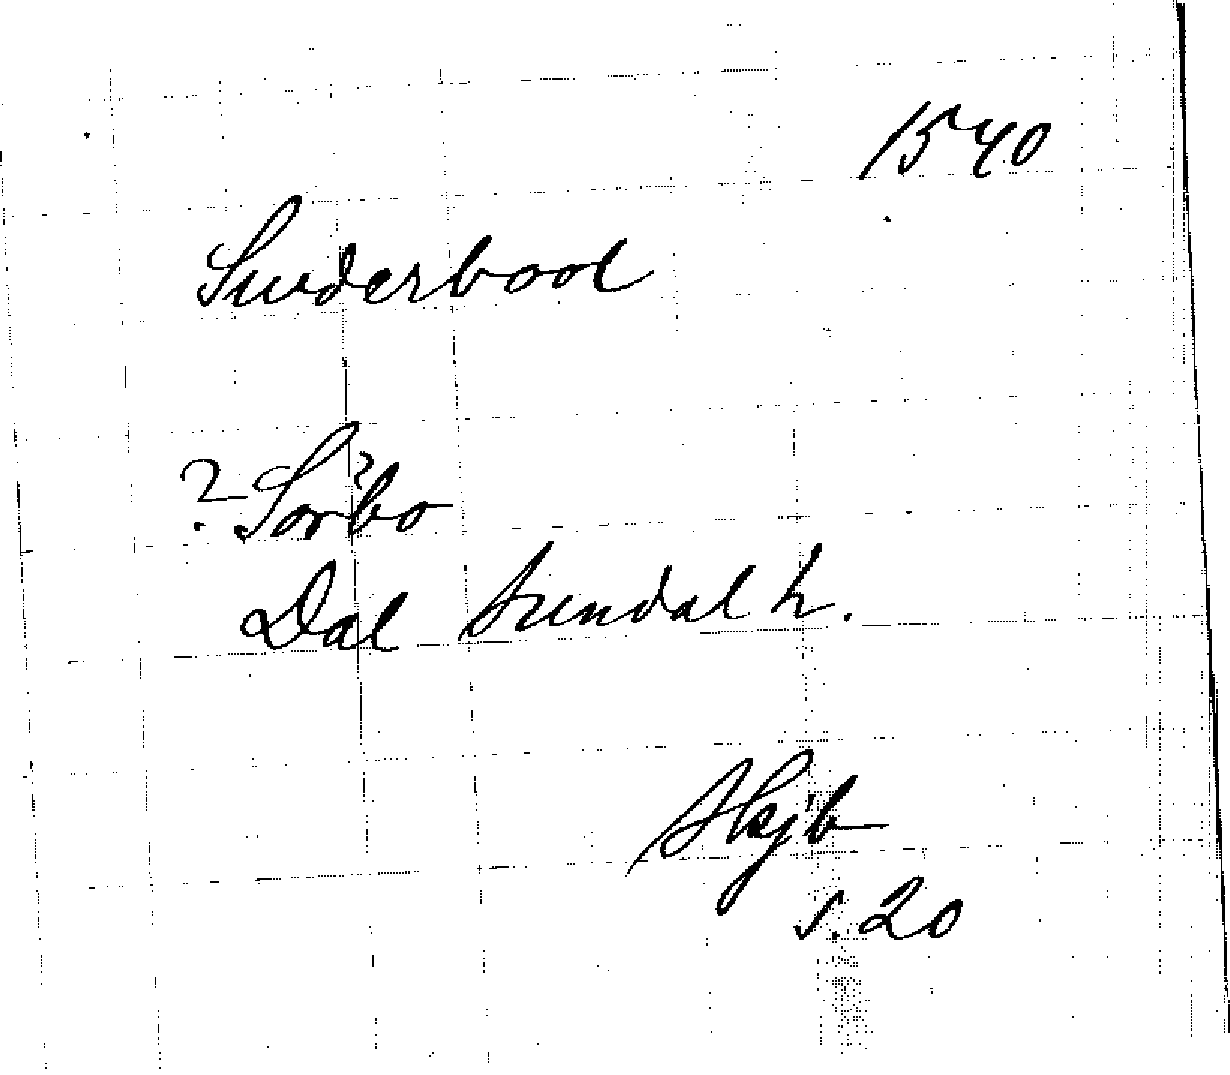 1540
Suderbool
? Sörbo
Dal Sundal h.
Skjb
s. 20